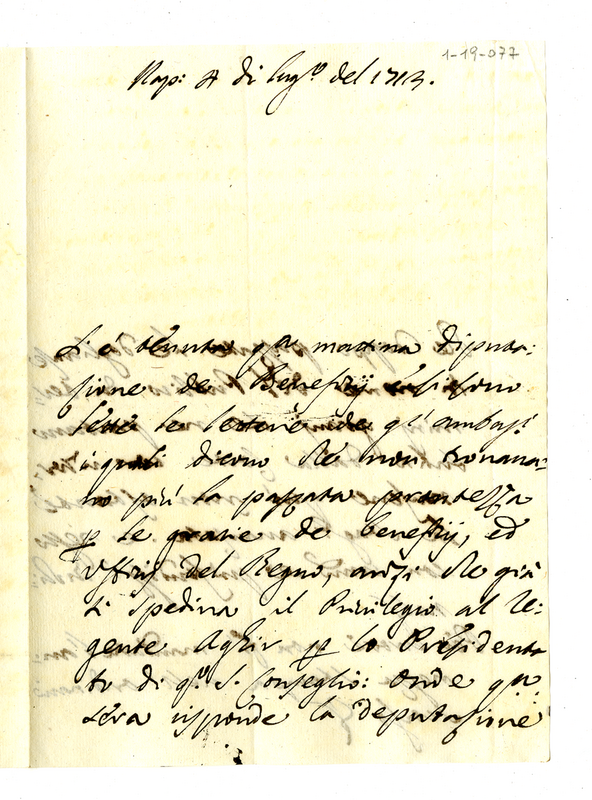 1-19-077
Nap: 4 di lug.º del 1713.
Si è tenuta q.ta mattina Diputa:
zione de Beneficij e si sono
lette le lettere de q.i ambas.i
i quali dicono che non trovana:
no più la passata prontezza
p le grazie de beneficij, ed
Officij del Regno, anzi che già
si spediva il Privilegio al Re:
gente Aghir p lo Presidenta
to di q.º S. Conseglio: Onde q.ta
sera risponde la deputazione